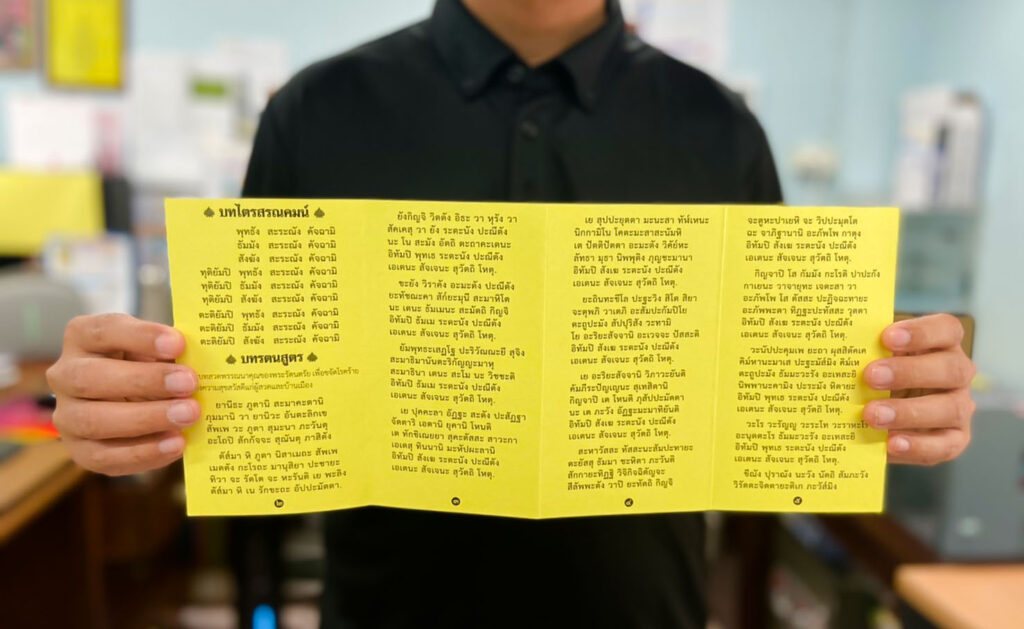 บทไตรสรณคมน์
พุทธัง สะระณัง คัจฉามิ
ธัมมัง สะระณัง คัจฉามิ
สังฆัง สะระณัง คัจฉามิ
ทุติยัมปิ พุทธัง สะระณัง คัจฉามิ
ทุติยัมปิ ธัมมัง สะระณัง คัจฉามิ
ทุติยัมปิ สังฆัง สะระณัง คัจฉามิ
ตะติยัมปิ พุทธัง สะระณัง คัจฉามิ
ตะติยัมปิ ธัมมัง สะระณัง คัจฉามิ
ตะติยัมปิ สังฆัง สะระณัง คัจฉามิ
บทรตนสูตร
บทสวดพรรณนาคุณของพระรัตนตรัย เพื่อขจัดโรคร้าย
ความสุขสวัสดีแก่ผู้สวดและบ้านเมือง
ยานีธะ ภูตานิ สะมาคะตานิ
ภุมมานิ วา ยานิวะ อันตะลิกเข
สัพเพ วะ ภูตา สุมะนา ภะวันตุ
อะโถปิ สักกัจจะ สุณันตุ ภาสิตัง
ตัส๎มา หิ ภูตา นิสาเมถะ สัพเพ
เมตตัง กะโรถะ มานุสิยา ปะชายะ
ทิวา จะ รัตโต จะ หะรันติ เย พะลิง
ตัส๎มา หิ เน รักขะถะ อัปปะมัตตา.
๒
ยังกิญจิ วิตตัง อิธะ วา หุรัง วา
สัคเคสุ วา ยัง ระตะนัง ปะณีตัง
นะ โน สะมัง อัตถิ ตะถาคะเตนะ
อิทัมปิ พุทเธ ระตะนัง ปะณีตัง
เอเตนะ สัจเจนะ สุวัตถิ โหตุ.
ขะยัง วิราคัง อะมะตัง ปะณีตัง
ยะทัชฌะคา สัก๎ยะมุนี สะมาหิโต
นะ เตนะ ธัมเมนะ สะมัตถิ กิญจิ
อิทัมปิ ธัมเม ระตะนัง ปะณีตัง
เอเตนะ สัจเจนะ สุวัตถิ โหตุ.
ยัมพุทธะเสฏโฐ ปะริวัณณะยี สุจิง
สะมาธิมานันตะริกัญญะมาหุ
สะมาธินา เตนะ สะโม นะ วิชชะติ
อิทัมปิ ธัมเม ระตะนัง ปะณีตัง
เอเตนะ สัจเจนะ สุวัตถิ โหตุ.
เย ปุคคะลา อัฏฐะ สะตัง ปะสัฏฐา
จัตตาริ เอตานิ ยุคานิ โหนติ
เต ทักขิเณยยา สุคะตัสสะ สาวะกา
เอเตสุ ทินนานิ มะหัปผะลานิ
อิทัมปิ สังเฆ ระตะนัง ปะณีตัง
เอเตนะ สัจเจนะ สุวัตถิ โหตุ.
๓
เย สุปปะยุตตา มะนะสา ทัฬ๎เหนะ
นิกกามิโน โคตะมะสาสะนัมหิ
เต ปัตติปัตตา อะมะตัง วิคัย๎หะ
ลัทธา มุธา นิพพุติง ภุญชะมานา
อิทัมปิ สังเฆ ระตะนัง ปะณีตัง
เอเตนะ สัจเจนะ สุวัตถิ โหตุ.
ยะถินทะขีโล ปะฐะวิง สิโต สิยา
จะตุพภิ วาเตภิ อะสัมปะกัมปิโย
ตะถูปะมัง สัปปุริสัง วะทามิ
โย อะริยะสัจจานิ อะเวจจะ ปัสสะติ
อิทัมปิ สังเฆ ระตะนัง ปะณีตัง
เอเตนะ สัจเจนะ สุวัตถิ โหตุ.
เย อะริยะสัจจานิ วิภาวะยันติ
คัมภีระปัญเญนะ สุเทสิตานิ
กิญจาปิ เต โหนติ ภุสัปปะมัตตา
นะ เต ภะวัง อัฏฐะมะมาทิยันติ
อิทัมปิ สังเฆ ระตะนัง ปะณีตัง
เอเตนะ สัจเจนะ สุวัตถิ โหตุ.
สะหาวัสสะ ทัสสะนะสัมปะทายะ
ตะยัสสุ ธัมมา ชะหิตา ภะวันติ
สักกายะทิฏฐิ วิจิกิจฉิตัญจะ
สีลัพพะตัง วาปิ ยะทัตถิ กิญจิ
๔
จะตูหะปาเยหิ จะ วิปปะมุตโต
ฉะ จาภิฐานานิ อะภัพโพ กาตุง
อิทัมปิ สังเฆ ระตะนัง ปะณีตัง
เอเตนะ สัจเจนะ สุวัตถิ โหตุ.
กิญจาปิ โส กัมมัง กะโรติ ปาปะกัง
กาเยนะ วาจายุทะ เจตะสา วา
อะภัพโพ โส ตัสสะ ปะฏิจฉะทายะ
อะภัพพะตา ทิฏฐะปะทัสสะ วุตตา
อิทัมปิ สังเฆ ระตะนัง ปะณีตัง
เอเตนะ สัจเจนะ สุวัตถิ โหตุ.
วะนัปปะคุมเพ ยะถา ผุสสิตัคเค
คิมหานะมาเส ปะฐะมัส๎มิง คิม๎เห
ตะถูปะมัง ธัมมะวะรัง อะเทสะยิ
นิพพานะคามิง ปะระมัง หิตายะ
อิทัมปิ พุทเธ ระตะนัง ปะณีตัง
เอเตนะ สัจเจนะ สุวัตถิ โหตุ.
วะโร วะรัญญู วะระโท วะราหะโร
อะนุตตะโร ธัมมะวะรัง อะเทสะยิ
อิทัมปิ พุทเธ ระตะนัง ปะณีตัง
เอเตนะ สัจเจนะ สุวัตถิ โหตุ.
ขีณัง ปุราณัง นะวัง นัตถิ สัมภะวัง
วิรัตตะจิตตายะติเก ภะวัส๎มิง
๕